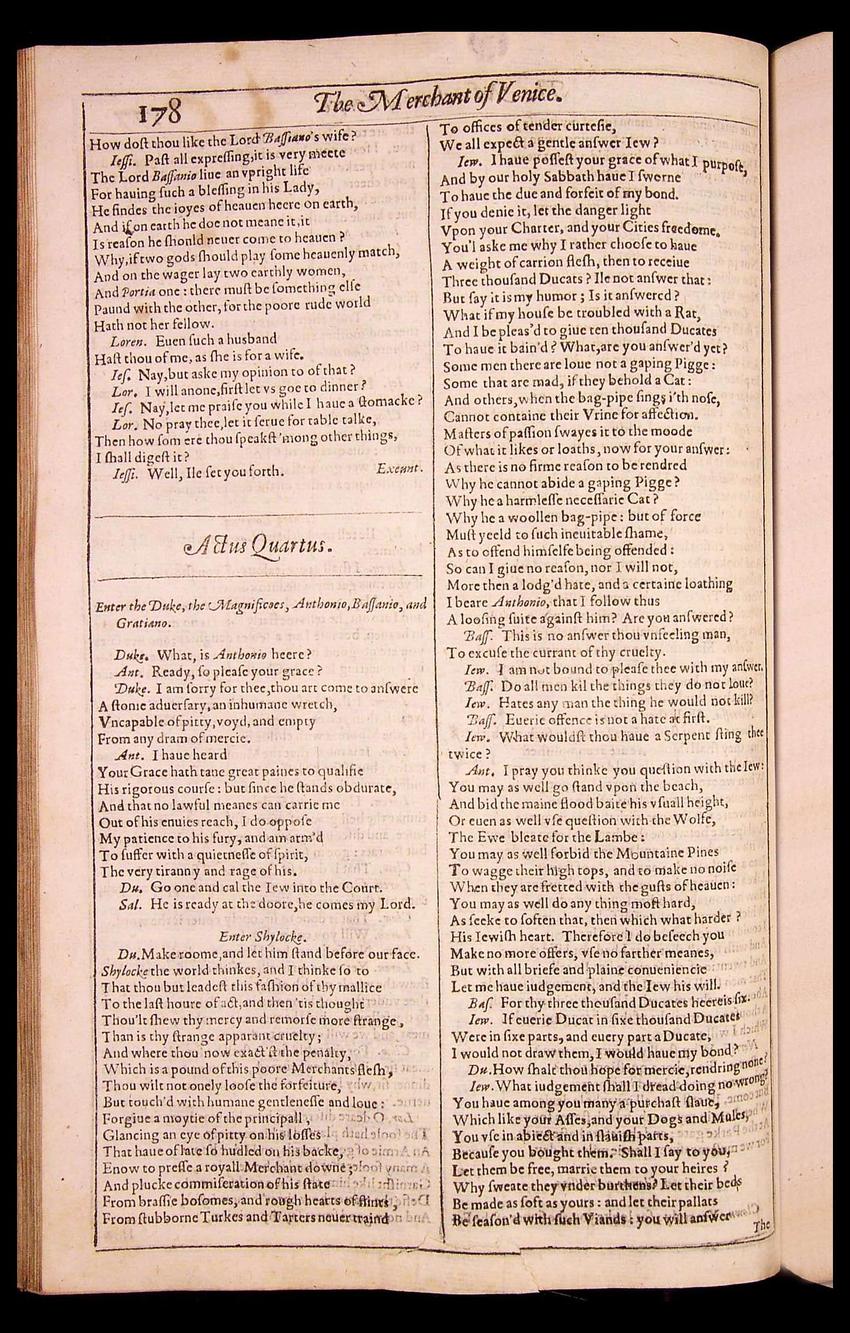 178
The Merchant of Venice.
How doſt thou like the Lord Baſſiano's wife?
Ieſſi. Paſt all expreſſing, it is very meete
The Lord Baſſanio liue an vpright life
For hauing ſuch a bleſſing in his Lady,
He findes the ioyes of heauen heere on earth,
And if on earth he doe not meane it, it
Is reaſon he ſhould neuer come to heauen?
Why, if two gods ſhould play ſome heauenly match,
And on the wager lay two earthly women,
And Portia one: there muſt be ſomething elſe
Paund with the other, for the poore rude world
Hath not her fellow.
Loren. Euen ſuch a husband
Haſt thou of me, as ſhe is for a wife.
Ieſ. Nay, but aske my opinion to of that?
Lor. I will anone, firſt let vs goe to dinner?
Ieſ. Nay, let me praiſe you while I haue a ſtomacke?
Lor. No pray thee, let it ſerue for table talke,
Then how ſom ere thou ſpeakſt 'mong other things,
I ſhall digeſt it?
Ieſſi. Well, Ile ſet you forth. Exeunt.
Actus Quartus.
Enter the Duke, the Magnificoes, Anthonio, Baſſanio, and
Gratiano.
Duke. What, is Anthonio heere?
Ant. Ready, ſo pleaſe your grace?
Duke. I am ſorry for thee, thou art come to anſwere
A ſtonie aduerſary, an inhumane wretch,
Vncapable of pitty, voyd, and empty
From any dram of mercie.
Ant. I haue heard
Your Grace hath tane great paines to qualifie
His rigorous courſe: but ſince he ſtands obdurate,
And that no lawful meanes can carrie me
Out of his enuies reach, I do oppoſe
My patience to his fury, and am arm'd
To ſuffer with a quietneſſe of ſpirit,
The very tiranny and rage of his.
Du. Go one and cal the Iew into the Court.
Sal. He is ready at the doore, he comes my Lord.
Enter Shylocke.
Du. Make roome, and let him ſtand before our face.
Shylocke the world thinkes, and I thinke ſo to
That thou but leadeſt this faſhion of thy mallice
To the laſt houre of act, and then 'tis thought
Thou'lt ſhew thy mercy and remorſe more ſtrange,
Than is thy ſtrange apparant cruelty;
And where thou now exact'ſt the penalty,
Which is a pound of this poore Merchants fleſh,
Thou wilt not onely looſe the forfeiture,
But touch'd with humane gentleneſſe and loue:
Forgiue a moytie of the principall,
Glancing an eye of pitty on his loſſes
That haue of late ſo hudled on his backe,
Enow to preſſe a royall Merchant downe;
And plucke commiſeration of his ſtate
From braſſie boſomes, and rough hearts of flints,
From ſtubborne Turkes and Tarters neuer traind
To offices of tender curteſie,
We all expect a gentle anſwer Iew?
Iew. I haue poſſeſt your grace of what I purpoſe,
And by our holy Sabbath haue I ſworne
To haue the due and forfeit of my bond.
If you denie it, let the danger light
Vpon your Charter, and your Cities freedome.
You'l aske me why I rather chooſe to haue
A weight of carrion fleſh, then to receiue
Three thouſand Ducats? Ile not anſwer that:
But ſay it is my humor; Is it anſwered?
What if my houſe be troubled with a Rat,
And I be pleas'd to giue ten thouſand Ducates
To haue it bain'd? What, are you anſwer'd yet?
Some men there are loue not a gaping Pigge:
Some that are mad, if they behold a Cat:
And others, when the bag-pipe ſings i'th noſe,
Cannot containe their Vrine for affection.
Maſters of paſſion ſwayes it to the moode
Of what it likes or loaths, now for your anſwer:
As there is no firme reaſon to be rendred
Why he cannot abide a gaping Pigge?
Why he a harmleſſe neceſſarie Cat?
Why he a woollen bag-pipe: but of force
Muſt yeeld to ſuch ineuitable ſhame,
As to offend himſelfe being offended:
So can I giue no reaſon, nor I will not,
More then a lodg'd hate, and a certaine loathing
I beare Anthonio, that I follow thus
A looſing ſuite againſt him? Are you anſwered?
Baſſ. This is no anſwer thou vnfeeling man,
To excuſe the currant of thy cruelty.
Iew. I am not bound to pleaſe thee with my anſwer.
Baſſ. Do all men kil the things they do not loue?
Iew. Hates any man the thing he would not kill?
Baſſ. Euerie offence is not a hate at firſt.
Iew. What wouldſt thou haue a Serpent ſting thee
twice?
Ant. I pray you thinke you queſtion with the Iew:
You may as well go ſtand vpon the beach,
And bid the maine flood baite his vſuall height,
Or euen as well vſe queſtion with the Wolfe,
The Ewe bleate for the Lambe:
You may as well forbid the Mountaine Pines
To wagge their high tops, and to make no noiſe
When they are fretted with the guſts of heauen:
You may as well do any thing moſt hard,
As ſeeke to ſoften that, then which what harder?
His Iewiſh heart. Therefore I do beſeech you
Make no more offers, vſe no farther meanes,
But with all briefe and plaine conueniencie
Let me haue iudgement, and the Iew his will.
Baſ. For thy three thouſand Ducates heere is ſix.
Iew. If euerie Ducat in ſixe thouſand Ducates
Were in ſixe parts, and euery part a Ducate,
I would not draw them, I would haue my bond?
Du. How ſhalt thou hope for mercie, rendring none?
Iew. What iudgement ſhall I dread doing no wrong?
You haue among you many a purchaſt ſlaue,
Which like your Aſſes, and your Dogs and Mules,
You vſe in abiect and in ſlauiſh parts,
Becauſe you bought them. Shall I ſay to you,
Let them be free, marrie them to your heires?
Why ſweate they vnder burthens? Let their beds
Be made as ſoft as yours: and let their pallats
Be ſeaſon'd with ſuch Viands: you will anſwer
The